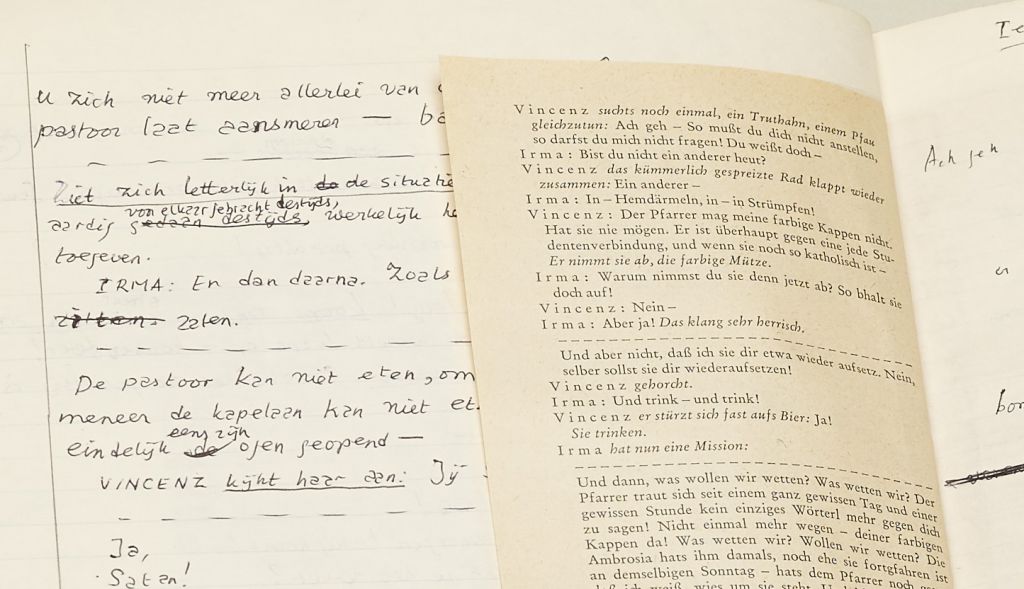 u zich niet meer allerlei van
pastoor laat aansmeren —
Ziet zich letterlijk in de de situatie
van elkaar gebracht destijds,
aardig gedaan destijds, werkelijk
toegeven.
IRMA: En dan daarna. Zoals
zitten. zaten.
De pastoor kan niet eten, om
meneer de kapelaan kan niet et
eens zijn
eindelijk de ogen geopend —
VINCENZ kijkt haar aan: Jij
Ja,
Satan!
Vincenz suchts noch einmal, ein Truthahn, einem Pfau
gleichzutun: Ach geh – So mußt du dich nicht anstellen,
so darfst du mich nicht fragen! Du weißt doch –
Irma: Bist du nicht ein anderer heut?
Vincenz das kümmerlich gespreizte Rad klappt wieder
zusammen: Ein anderer –
Irma: In – Hemdärmeln, in – in Strümpfen!
Vincenz: Der Pfarrer mag meine farbige Kappen nicht.
Hat sie nie mögen. Er ist überhaupt gegen eine jede Stu-
dentenverbindung, und wenn sie noch so katholisch ist –
Er nimmt sie ab, die farbige Mütze.
Irma: Warum nimmst du sie denn jetzt ab? So bhalt sie
doch auf!
Vincenz: Nein –
Irma: Aber ja! Das klang sehr herrisch.
Und aber nicht, daß ich sie dir etwa wieder aufsetz. Nein,
selber sollst sie dir wiederaufsetzen!
Vincenz gehorcht.
Irma: Und trink – und trink!
Vincenz er stürzt sich fast aufs Bier: Ja!
Sie trinken.
Irma hat nun eine Mission:
Und dann, was wollen wir wetten? Was wetten wir? Der
Pfarrer traut sich seit einem ganz gewissen Tag und einer
gewissen Stunde kein einziges Wörterl mehr gegen dich
zu sagen! Nicht einmal mehr wegen – deiner farbigen
Kappen da! Was wetten wir? Wollen wir wetten? Die
Ambrosia hats ihm damals, noch ehe sie fortgfahren ist
an demselbigen Sonntag – hats dem Pfarrer noch
daß ich weiß, wies um sie steht.
Ach geh
en